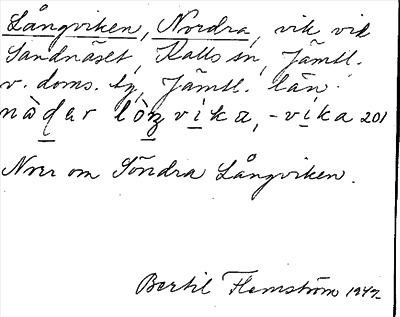 Långviken, Nordra, vik vid
Sandnäset, Kalls sn, Jämtl.
v. doms. tg, Jämtl. län.
nòḍar lòŋvika, -vika 201
Nrr om Söndra Långviken.
Bertil Flemström 1947.